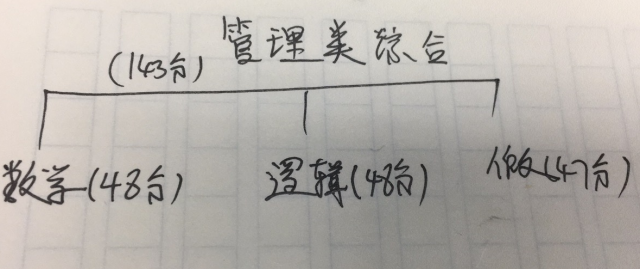 (143分) 管理类综合
数学(48分) 逻辑(48分) 作文(47分)